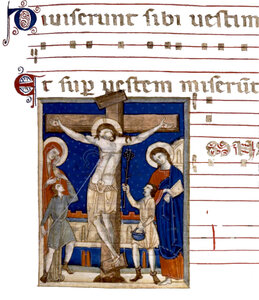 Diviserunt sibi vestim
Et sup vestem miserūt